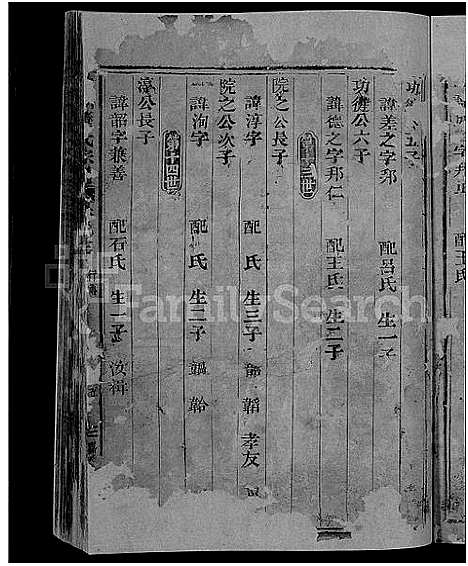 諱差之字邦 配呂氏 生一子
功從公六子
諱德之字邦仁 配王氏 生二子
第十三世
院之公長子
諱淳字 配 氏 生三子 韜 孝友
院之公次子
諱洵字 配 氏 生二子 韞 韐
第十四世
淳公長子
諱韶字兼善 配石氏 生一子 汝楫
配王氏
FamilySearch